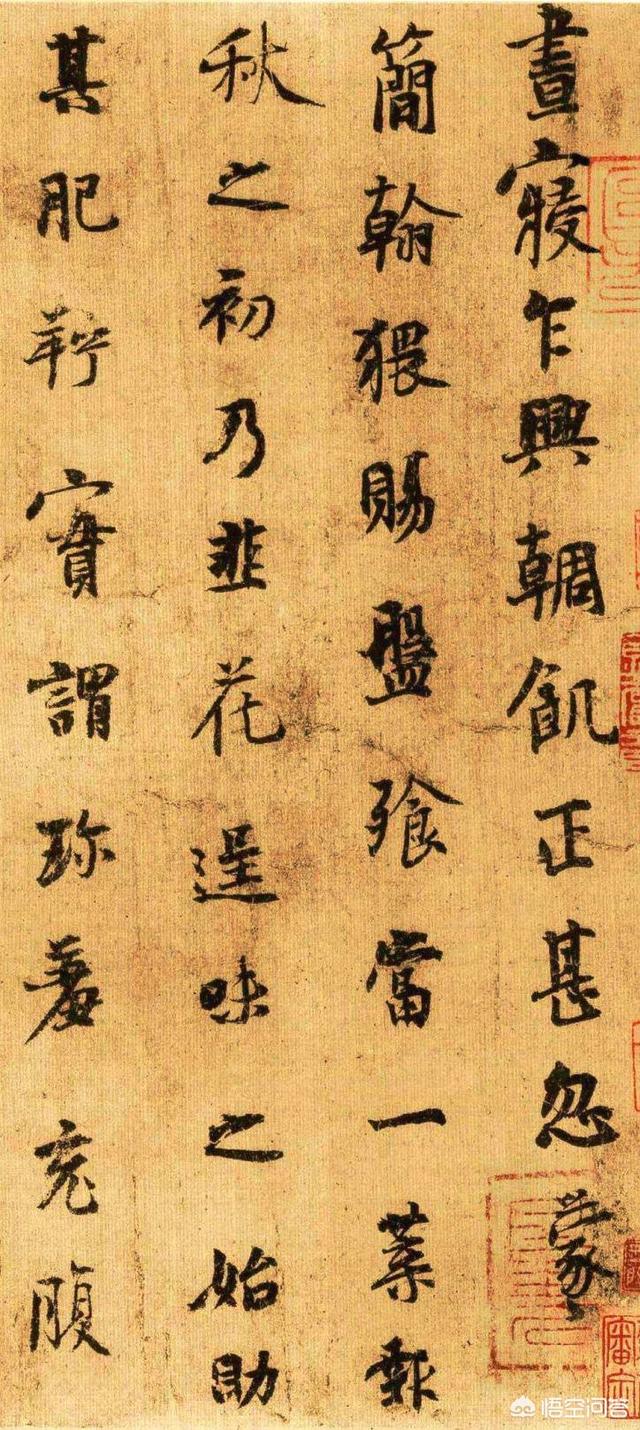 晝寢乍興輖飢正甚忽蒙
簡翰猥賜盤飧當一葉報
秋之初乃韭花逞味之始助
其肥羜實謂珍羞充腹
悟空问答